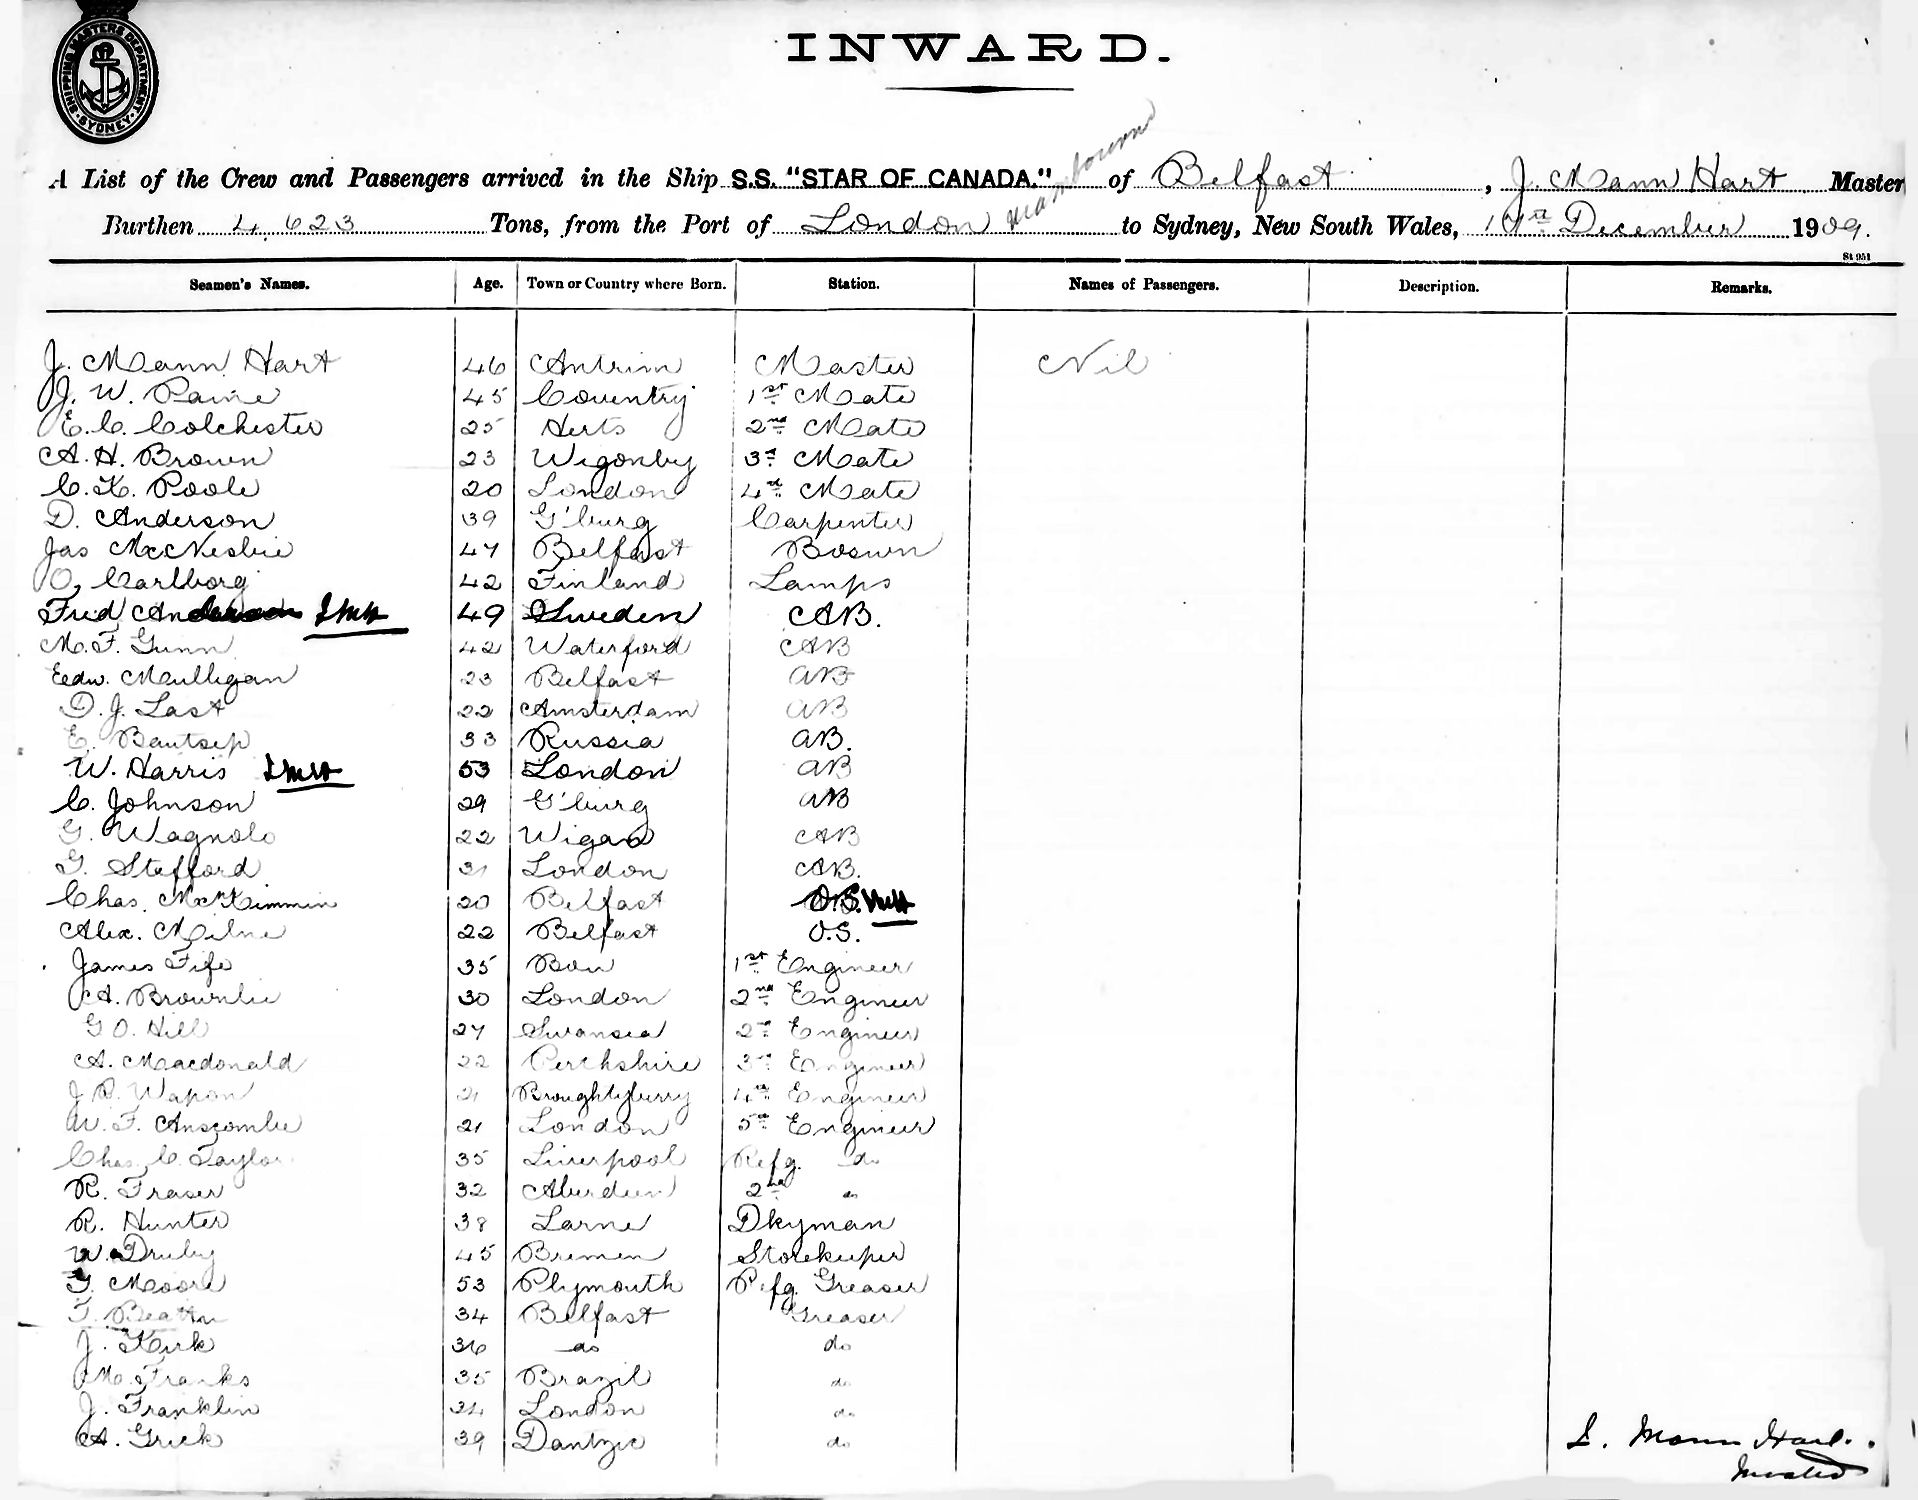 SHIPPING MASTERS DEPARTMENT
SYDNEY
INWARD.
A List of the Crew and Passengers arrived in the Ship S.S. "STAR OF CANADA." of Belfast, J. Mann Hart Master
Burthen 4,623 Tons, from the Port of London to Sydney, New South Wales, December 1909.
St 951
Seamen's Names. Age. Town or Country where Born. Station. Names of Passengers. Description. Remarks.
J. Mann Hart 46 Antrim Master Nil
J. W. Paine 45 Coventry 1st Mate
E. C. Colchester 25 Herts 2nd Mate
A. H. Brown 23 Wigonby 3rd Mate
C. K. Poole 20 London 4th Mate
D. Anderson 39 G'burg Carpenter
Jas 47 Belfast Boswn
O. Carlborg 42 Finland Lamps
Fred Anderson 49 Sweden AB.
M. F. Gunn 42 Waterford AB
Edw. Mulligan 23 Belfast AB
D. J. Last 22 Amsterdam AB
E. 33 Russia AB.
W. Harris 53 London AB
C. Johnson 29 G'burg AB
G. 22 Wigan AB
G. Stefford 31 London AB.
Chas. McKimmin 20 Belfast O.S.
Alex. Milne 22 Belfast O.S.
James Fife 35 Bow 1st Engineer
A. Brownlie 30 London 2nd Engineer
G O. Hill 27 Swansea 2nd Engineer
A. Macdonald 22 Perthshire 3rd Engineer
J. 21 4th Engineer
W. F. Anscombe 21 London 5th Engineer
Chas. C. Taylor 35 Liverpool Refg. do
R. Fraser 32 Aberdeen 2nd do
R. Hunter 38 Larne Dkyman
W. Druby 45 Bremen Storekeeper
Moore 53 Plymouth Refg. Greaser
T. 34 Belfast Greaser
J. Kirk 36 do do
M. Franks 35 Brazil do
J. Franklin 34 London do
A. Grick 39 Dantzic do
J. Mann Hart.
Master